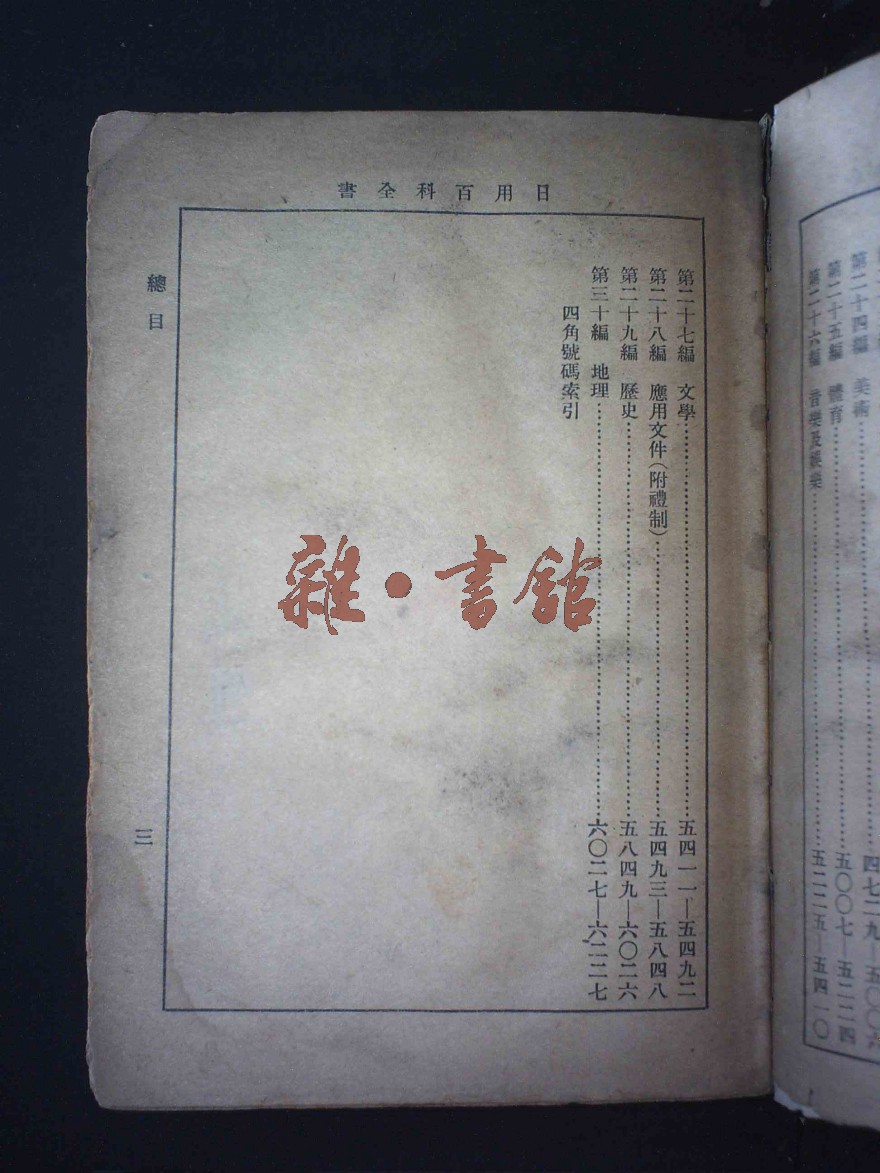 第二十四編　美術……四七二九—五〇〇六
第二十五編　體育……五〇〇七—五二二四
第二十六編　音樂及娛樂……五二二五—五四一〇
日用百科全書
第二十七編　文學……五四一一—五四九二
第二十八編　應用文件(附禮制)……五四九三—五八四八
第二十九編　歷史……五八四九—六〇二六
第三十編　地理……六〇二七—六二二七
四角號碼索引
總目
三
雜·書館